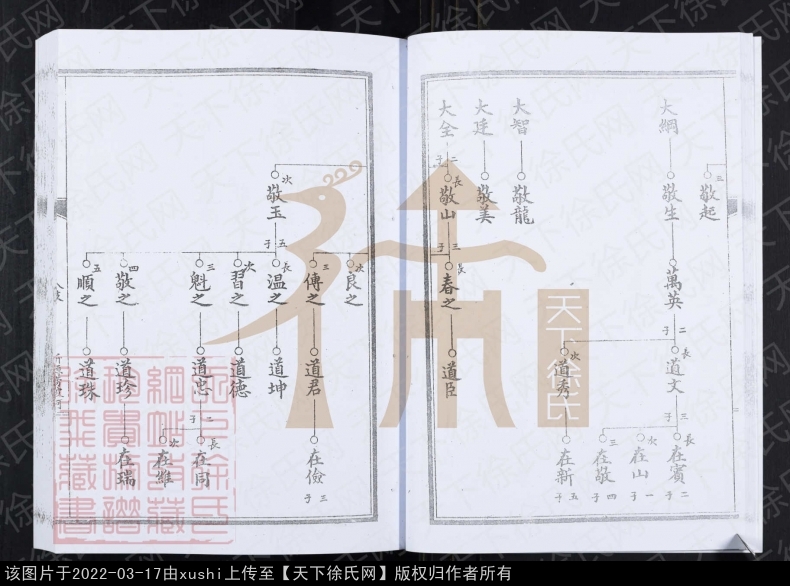 三
敬起
大綱
敬生
萬英
二子
長
道文
三子
長
在賓
二子
次
在山
一子
三
在敬
四子
次
道秀
在新
五子
大智
敬龍
大廷
敬美
大全
二子
長
敬山
三子
長
春之
道臣
次
良之
三
傳之
道君
在儉
三子
次
敬玉
五子
長
温之
道坤
次
習之
道德
三
魁之
道忠
二子
長
在同
次
在維
四
敬之
道珍
在瑞
五
順之
道珠
天下徐氏
天下徐氏网
该图片于2022-03-17由xushi上传至【天下徐氏网】版权归作者所有